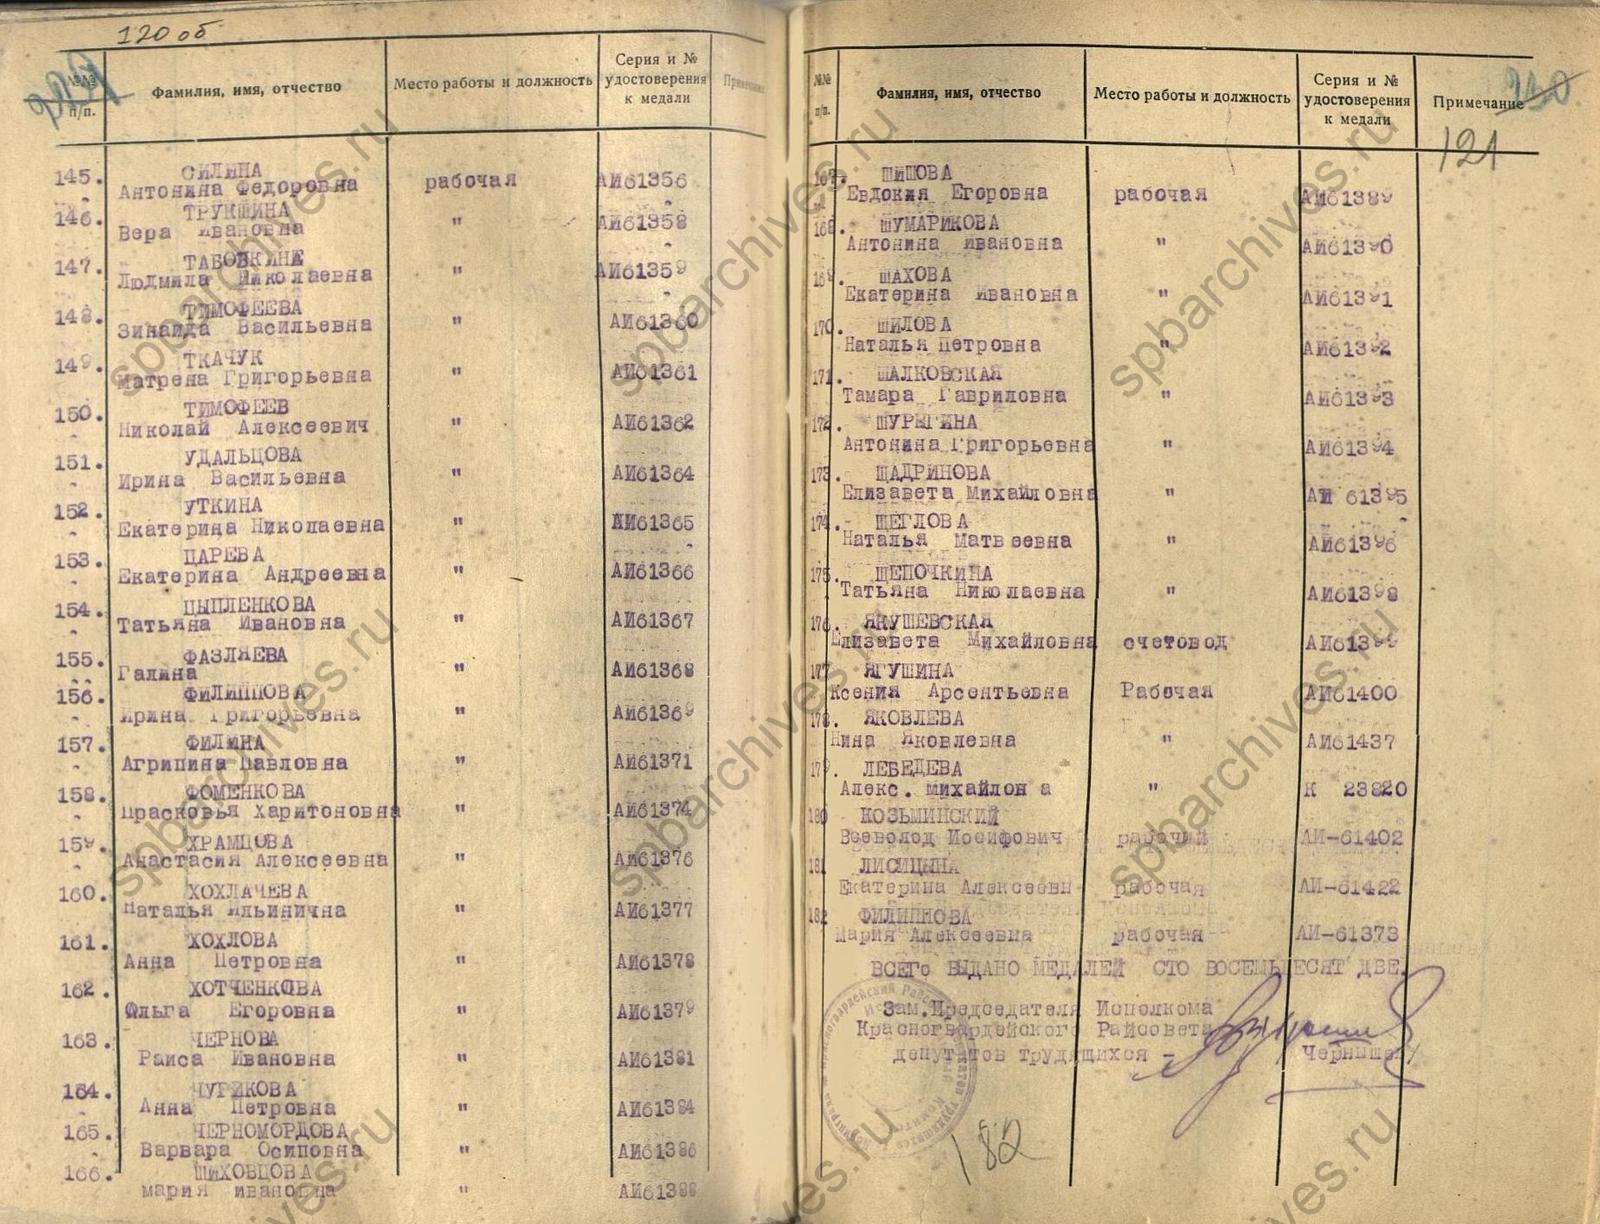 120 об
№№ п/п.
Фамилия, имя, отчество
Место работы и должность
Серия и № удостоверения к медали
145. СИЛИНА
Антонина Федоровна рабочая АИ61356
146. ТРУКШИНА
Вера Ивановна " АИ61358
147. ТАБОВКИНА
Людмила Николаевна " АИ61359
148. ТИМОФЕЕВА
Зинаида Васильевна " АИ61360
149. ТКАЧУК
Матрена Григорьевна " АИ61361
150. ТИМОФЕЕВ
Николай Алексеевич " АИ61362
151. УДАЛЬЦОВА
Ирина Васильевна " АИ61364
152. УТКИНА
Екатерина Николаевна " АИ61365
153. ЦАРЕВА
Екатерина Андреевна " АИ61366
154. ЦЫПЛЕНКОВА
Татьяна Ивановна " АИ61367
155. ФАЗЛЯЕВА
Галина " АИ61368
156. ФИЛИППОВА
Ирина Григорьевна " АИ61369
157. ФИЛИНА
Агрипина Павловна " АИ61371
158. ФОМЕНКОВА
Прасковья Харитоновна " АИ61374
159. ХРАМЦОВА
Анастасия Алексеевна " АИ61376
160. ХОХЛАЧЕВА
Наталья Ильинична " АИ61377
161. ХОХЛОВА
Анна Петровна " АИ61378
162. ХОТЧЕНКОВА
Ольга Егоровна " АИ61379
163. ЧЕРНОВА
Раиса Ивановна " АИ61381
164. ЧУРИКОВА
Анна Петровна " АИ61384
165. ЧЕРНОМОРДОВА
Варвара Осиповна " АИ61386
166. ШИХОВЦОВА
мария ивановна " АИ61388
№№ п/п.
Фамилия, имя, отчество
Место работы и должность
Серия и № удостоверения к медали
Примечание
121
167. ШИШОВА
Евдокия Егоровна рабочая АИ61389
168. ШУМАРИКОВА
Антонина Ивановна " АИ61390
169. ШАХОВА
Екатерина Ивановна " АИ61391
170. ШИЛОВА
Наталья Петровна " АИ61392
171. ШАЛКОВСКАЯ
Тамара Гавриловна " АИ61393
172. ШУРЫГИНА
Антонина Григорьевна " АИ61394
173. ЩАДРИНОВА
Елизавета Михайловна " АИ 61395
174. ЩЕГЛОВА
Наталья Матвеевна " АИ61396
175. ЩЕПОЧКИНА
Татьяна Николаевна " АИ61398
176. ЯКУШЕВСКАЯ
Елизавета Михайловна счетовод АИ61399
177 ЯГУШИНА
Ксения Арсентьевна Рабочая АИ61400
178. ЯКОВЛЕВА
Нина Яковлевна " АИ61437
179. ЛЕБЕДЕВА
Алекс. михайлон а " К 23820
180 КОЗЬМИНСКИЙ
Всеволод Иосифович рабочий АИ-61402
181 ЛИСИЦЫНА
Екатерина Алексеевн рабочая АИ-61422
182 ФИЛИППОВА
Мария Алексеевна рабочая АИ-61373
ВСЕГо ВЫДАНО МЕДАЛЕЙ СТО ВОСЕМЬДЕСЯТ ДВЕ.
Зам.Председателя Исполкома
Красногвардейского Райсовета
депутатов трудящихся - /Чернышев/
182
spbarchives.ru
spbarchives.ru
spbarchives.ru
spbarchives.ru
spbarchives.ru
spbarchives.ru